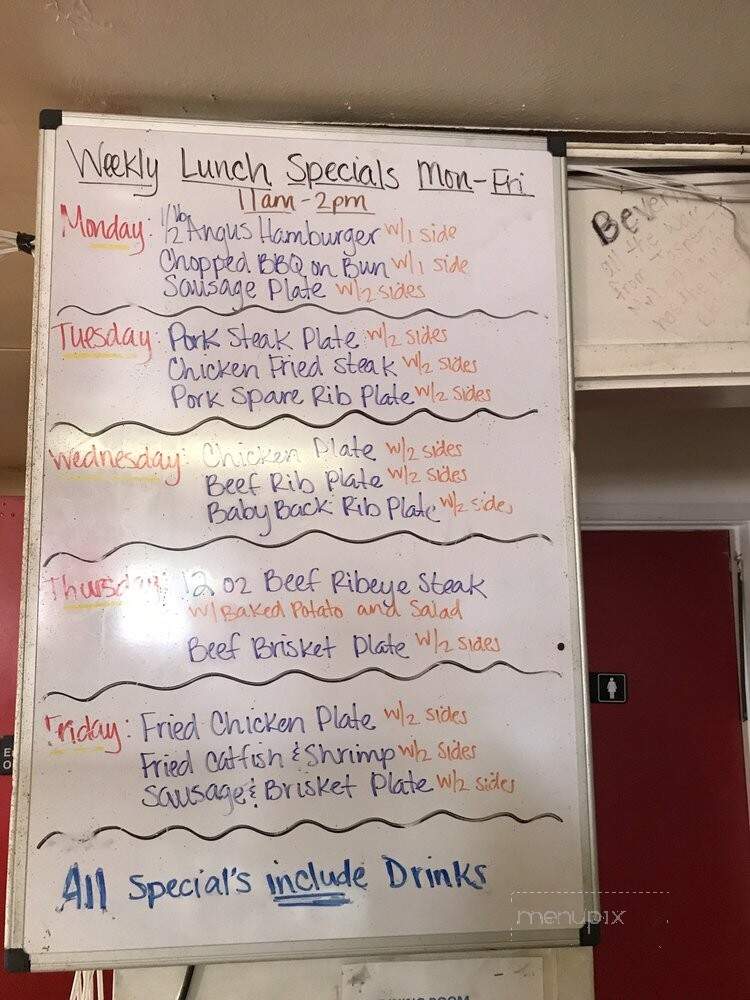 Weekly Lunch Specials Mon-Fri
11am-2pm
Monday: 1/2 lb Angus Hamburger w/1 side
Chopped BBQ on Bun w/1 side
Sausage Plate w/2 sides
Tuesday: Pork Steak Plate w/2 sides
Chicken Fried steak w/2 sides
Pork Spare Rib Plate w/2 sides
Wednesday: Chicken Plate w/2 sides
Beef Rib Plate w/2 sides
Baby Back Rib Plate w/2 sides
Thursday: 12 oz Beef Ribeye Steak
w/Baked Potato and Salad
Beef Brisket Plate w/2 sides
Friday: Fried Chicken Plate w/2 sides
Fried Catfish & Shrimp w/2 sides
Sausage & Brisket Plate w/2 sides
All Special's include Drinks
menupix